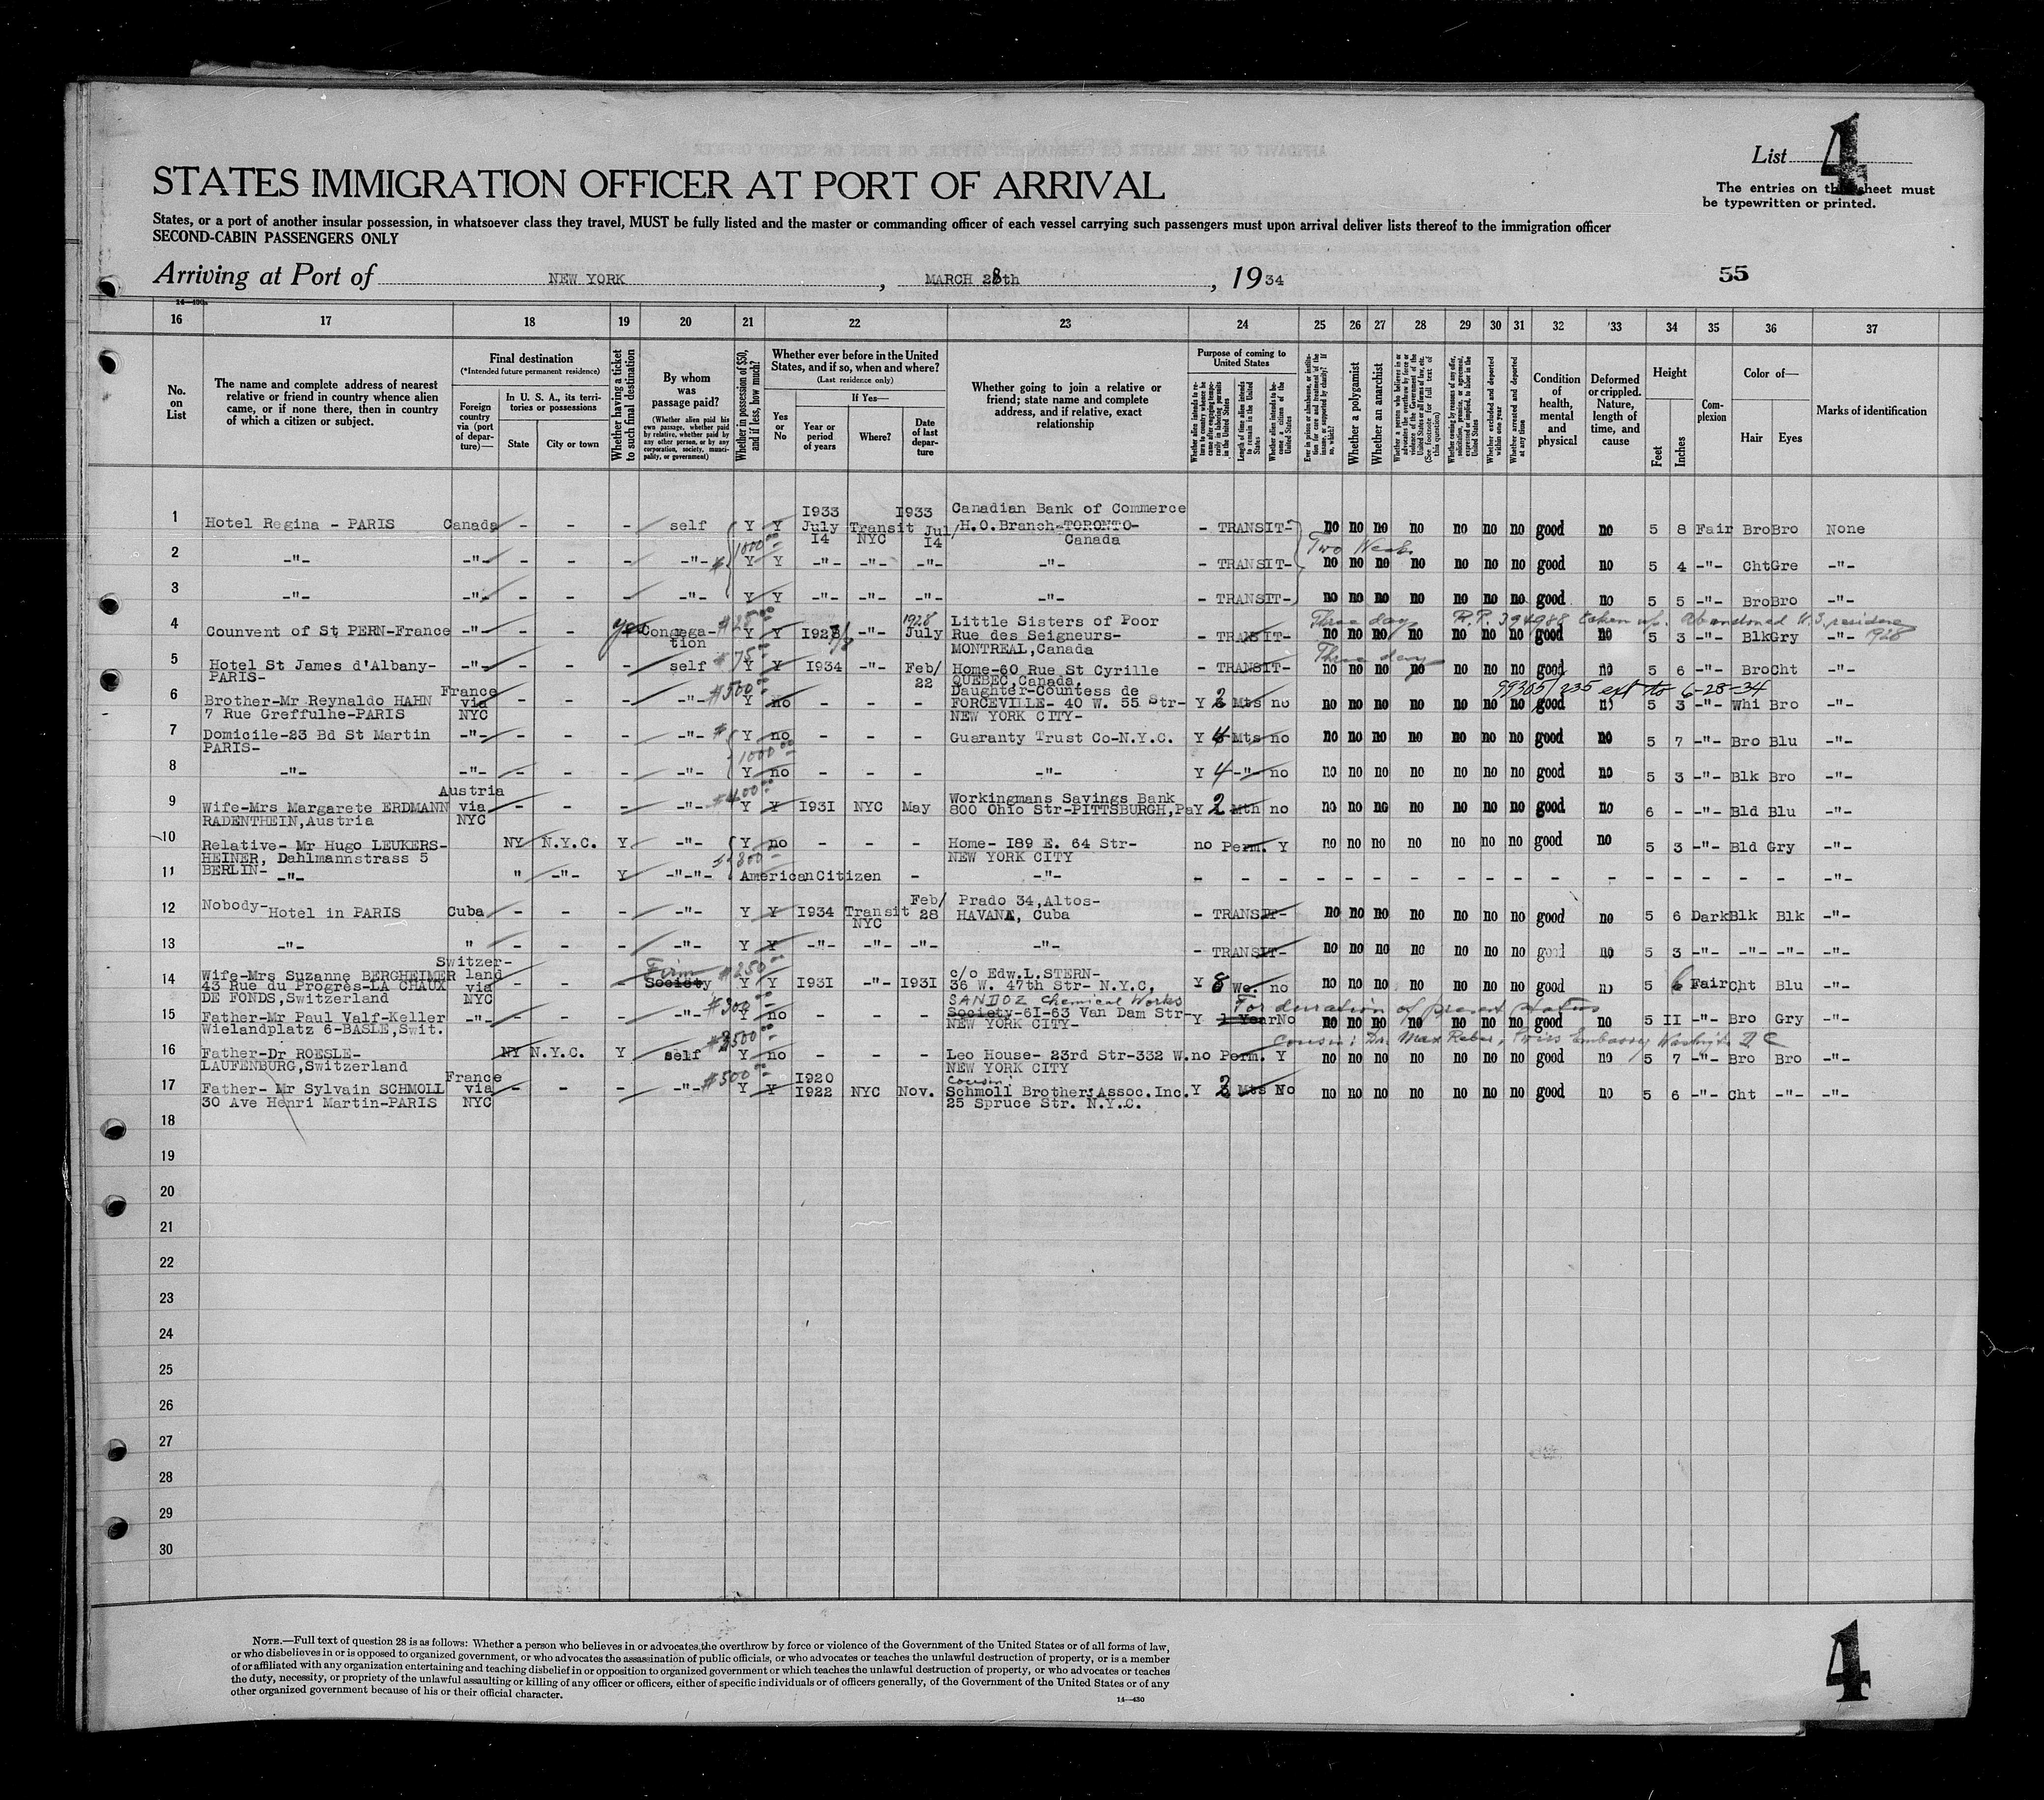 List 4
The entries on this sheet must
be typewritten or printed.
STATES IMMIGRATION OFFICER AT PORT OF ARRIVAL
States, or a port of another insular possession, in whatsoever class they travel, MUST be fully listed and the master or commanding officer of each vessel carrying such passengers must upon arrival deliver lists thereof to the immigration officer
SECOND-CABIN PASSENGERS ONLY
Arriving at Port of NEW YORK, MARCH 28th, 1934
55
16 17 18 19 20 21 22 23 24 25 26 27 28 29 30 31 32 33 34 35 36 37
No. on List
The name and complete address of nearest relative or friend in country whence alien came, or if none there, then in country of which a citizen or subject.
Final destination
(*Intended future permanent residence)
Foreign country via (port of departure)—
In U. S. A., its territories or possessions
State
City or town
Whether having a ticket to such final destination
By whom was passage paid?
(Whether alien paid his own passage, whether paid by relative, whether paid by any other person, or by any corporation, society, municipality, or government)
Whether in possession of $50, and if less, how much?
Whether ever before in the United States, and if so, when and where?
(Last residence only)
Yes or No
If Yes—
Year or period of years
Where?
Date of last departure
Whether going to join a relative or friend; state name and complete address, and if relative, exact relationship
Purpose of coming to United States
Length of time alien intends to remain in the United States
Whether alien intends to become a citizen of the United States
Whether a polygamist
Whether an anarchist
Whether excluded and deported within one year
Whether arrested and deported at any time
Condition of health, mental and physical
Deformed or crippled. Nature, length of time, and cause
Height
Feet
Inches
Complexion
Color of—
Hair
Eyes
Marks of identification
1 Hotel Regina - PARIS Canada - - - self Y Y 1933 July 14 Transit NYC 1933 Jul/ 14 Canadian Bank of Commerce /H.O.Branch-TORONTO- Canada - TRANSIT- no no no no no no no good no 5 8 Fair Bro Bro None
$1000.00 Two Weeks
2 -"- -"- - - - -"- Y Y -"- -"- -"- -"- - TRANSIT- no no no no no no no good no 5 4 -"- Cht Gre -"-
3 -"- -"- - - - -"- Y Y -"- -"- -"- -"- - TRANSIT- no no no no no no no good no 5 5 -"- Bro Bro -"-
$25.00 Three days R.P. 394988 taken up. Abandoned U.S. residence 1928
4 Counvent of St PERN-France -"- - - yes Congegation Y Y 1928 -"- 1928 July Little Sisters of Poor Rue des Seigneurs- MONTREAL,Canada - TRANSIT- no no no no no no no good no 5 3 -"- Blk Gry -"-
$75.00 Three days
5 Hotel St James d'Albany- PARIS- -"- - - - self Y Y 1934 -"- Feb/ 22 Home-60 Rue St Cyrille QUEBEC,Canada. - TRANSIT- no no no no no no no good no 5 6 -"- Bro Cht -"-
$500.00 99305/235 ext to 6-28-34
6 Brother-Mr Reynaldo HAHN 7 Rue Greffulhe-PARIS France via NYC - - - -"- Y no - - - Daughter-Countess de FORCEVILLE- 40 W. 55 Str- NEW YORK CITY- Y 3 Mts no no no no no no no no good no 5 3 -"- Whi Bro -"-
7 Domicile-23 Bd St Martin PARIS- -"- - - - -"- Y no - - - Guaranty Trust Co-N.Y.C. Y 4 Mts no no no no no no no no good no 5 7 -"- Bro Blu -"-
$1000.00
8 -"- -"- - - - -"- Y no - - - -"- Y 4 -"- no no no no no no no no good no 5 3 -"- Blk Bro -"-
$400.00
9 Wife-Mrs Margarete ERDMANN RADENTHEIN,Austria Austria via NYC - - - -"- Y Y 1931 NYC May Workingmans Savings Bank 800 Ohio Str-PITTSBURGH,Pa Y 2 Mth no no no no no no no no good no 6 - -"- Bld Blu -"-
10 Relative- Mr Hugo LEUKERS- HEINER, Dahlmannstrass 5 BERLIN- NY N.Y.C. Y -"- Y no - - - Home- 189 E. 64 Str- NEW YORK CITY no Perm. Y no no no no no no no good no 5 3 -"- Bld Gry -"-
$300.00
11 -"- " -"- Y -"-"- American Citizen - -"- - - - - - - - - - - - - - - - - - -"-
12 Nobody-Hotel in PARIS Cuba - - - -"- Y Y 1934 Transit NYC Feb/ 28 Prado 34,Altos- HAVANA, Cuba - TRANSIT- no no no no no no no good no 5 6 Dark Blk Blk -"-
13 -"- " - - - -"- Y Y -"- -"- -"- -"- - TRANSIT- no no no no no no no good no 5 3 -"- -"- -"- -"-
Firm $250.00
14 Wife-Mrs Suzanne BERGHEIMER 43 Rue du Progrès-LA CHAUX DE FONDS,Switzerland Switzerland via NYC - - - Society Y Y 1931 -"- 1931 c/o Edw.L.STERN- 36 W. 47th Str- N.Y.C, Y 8 We. no no no no no no no no good no 5 6 Fair Cht Blu -"-
$300.00 SANDOZ Chemical Works For duration of present status
15 Father-Mr Paul Valf-Keller Wielandplatz 6-BASLE,Swit. -"- - - - -"- Y no - - - Society-61-63 Van Dam Str- NEW YORK CITY- Y 1 Year No no no no no no no no good no 5 11 -"- Bro Gry -"-
$2500.00 cousin: Dr. Max Reber, Swiss Embassy Washingt. D C
16 Father-Dr ROESLE- LAUFENBURG,Switzerland NY N.Y.C. Y self Y no - - - Leo House- 23rd Str-332 W. NEW YORK CITY no Perm. Y no no no no no no no good no 5 7 -"- Bro Bro -"-
$500.00 cousin:
17 Father- Mr Sylvain SCHMOLL 30 Ave Henri Martin-PARIS France via NYC - - - -"- Y Y 1920 1922 NYC Nov. Schmoll Brothers Assoc.Inc. 25 Spruce Str. N.Y.C. Y 2 Mts No no no no no no no no good no 5 6 -"- Cht -"- -"-
18
19
20
21
22
23
24
25
26
27
28
29
30
NOTE.—Full text of question 28 is as follows: Whether a person who believes in or advocates the overthrow by force or violence of the Government of the United States or of all forms of law,
or who disbelieves in or is opposed to organized government, or who advocates the assassination of public officials, or who advocates or teaches the unlawful destruction of property, or is a member
of or affiliated with any organization entertaining and teaching disbelief in or opposition to organized government or which teaches the unlawful destruction of property, or who advocates or teaches
the duty, necessity, or propriety of the unlawful assaulting or killing of any officer or officers, either of specific individuals or of officers generally, of the Government of the United States or of any
other organized government because of his or their official character.
14—430
4